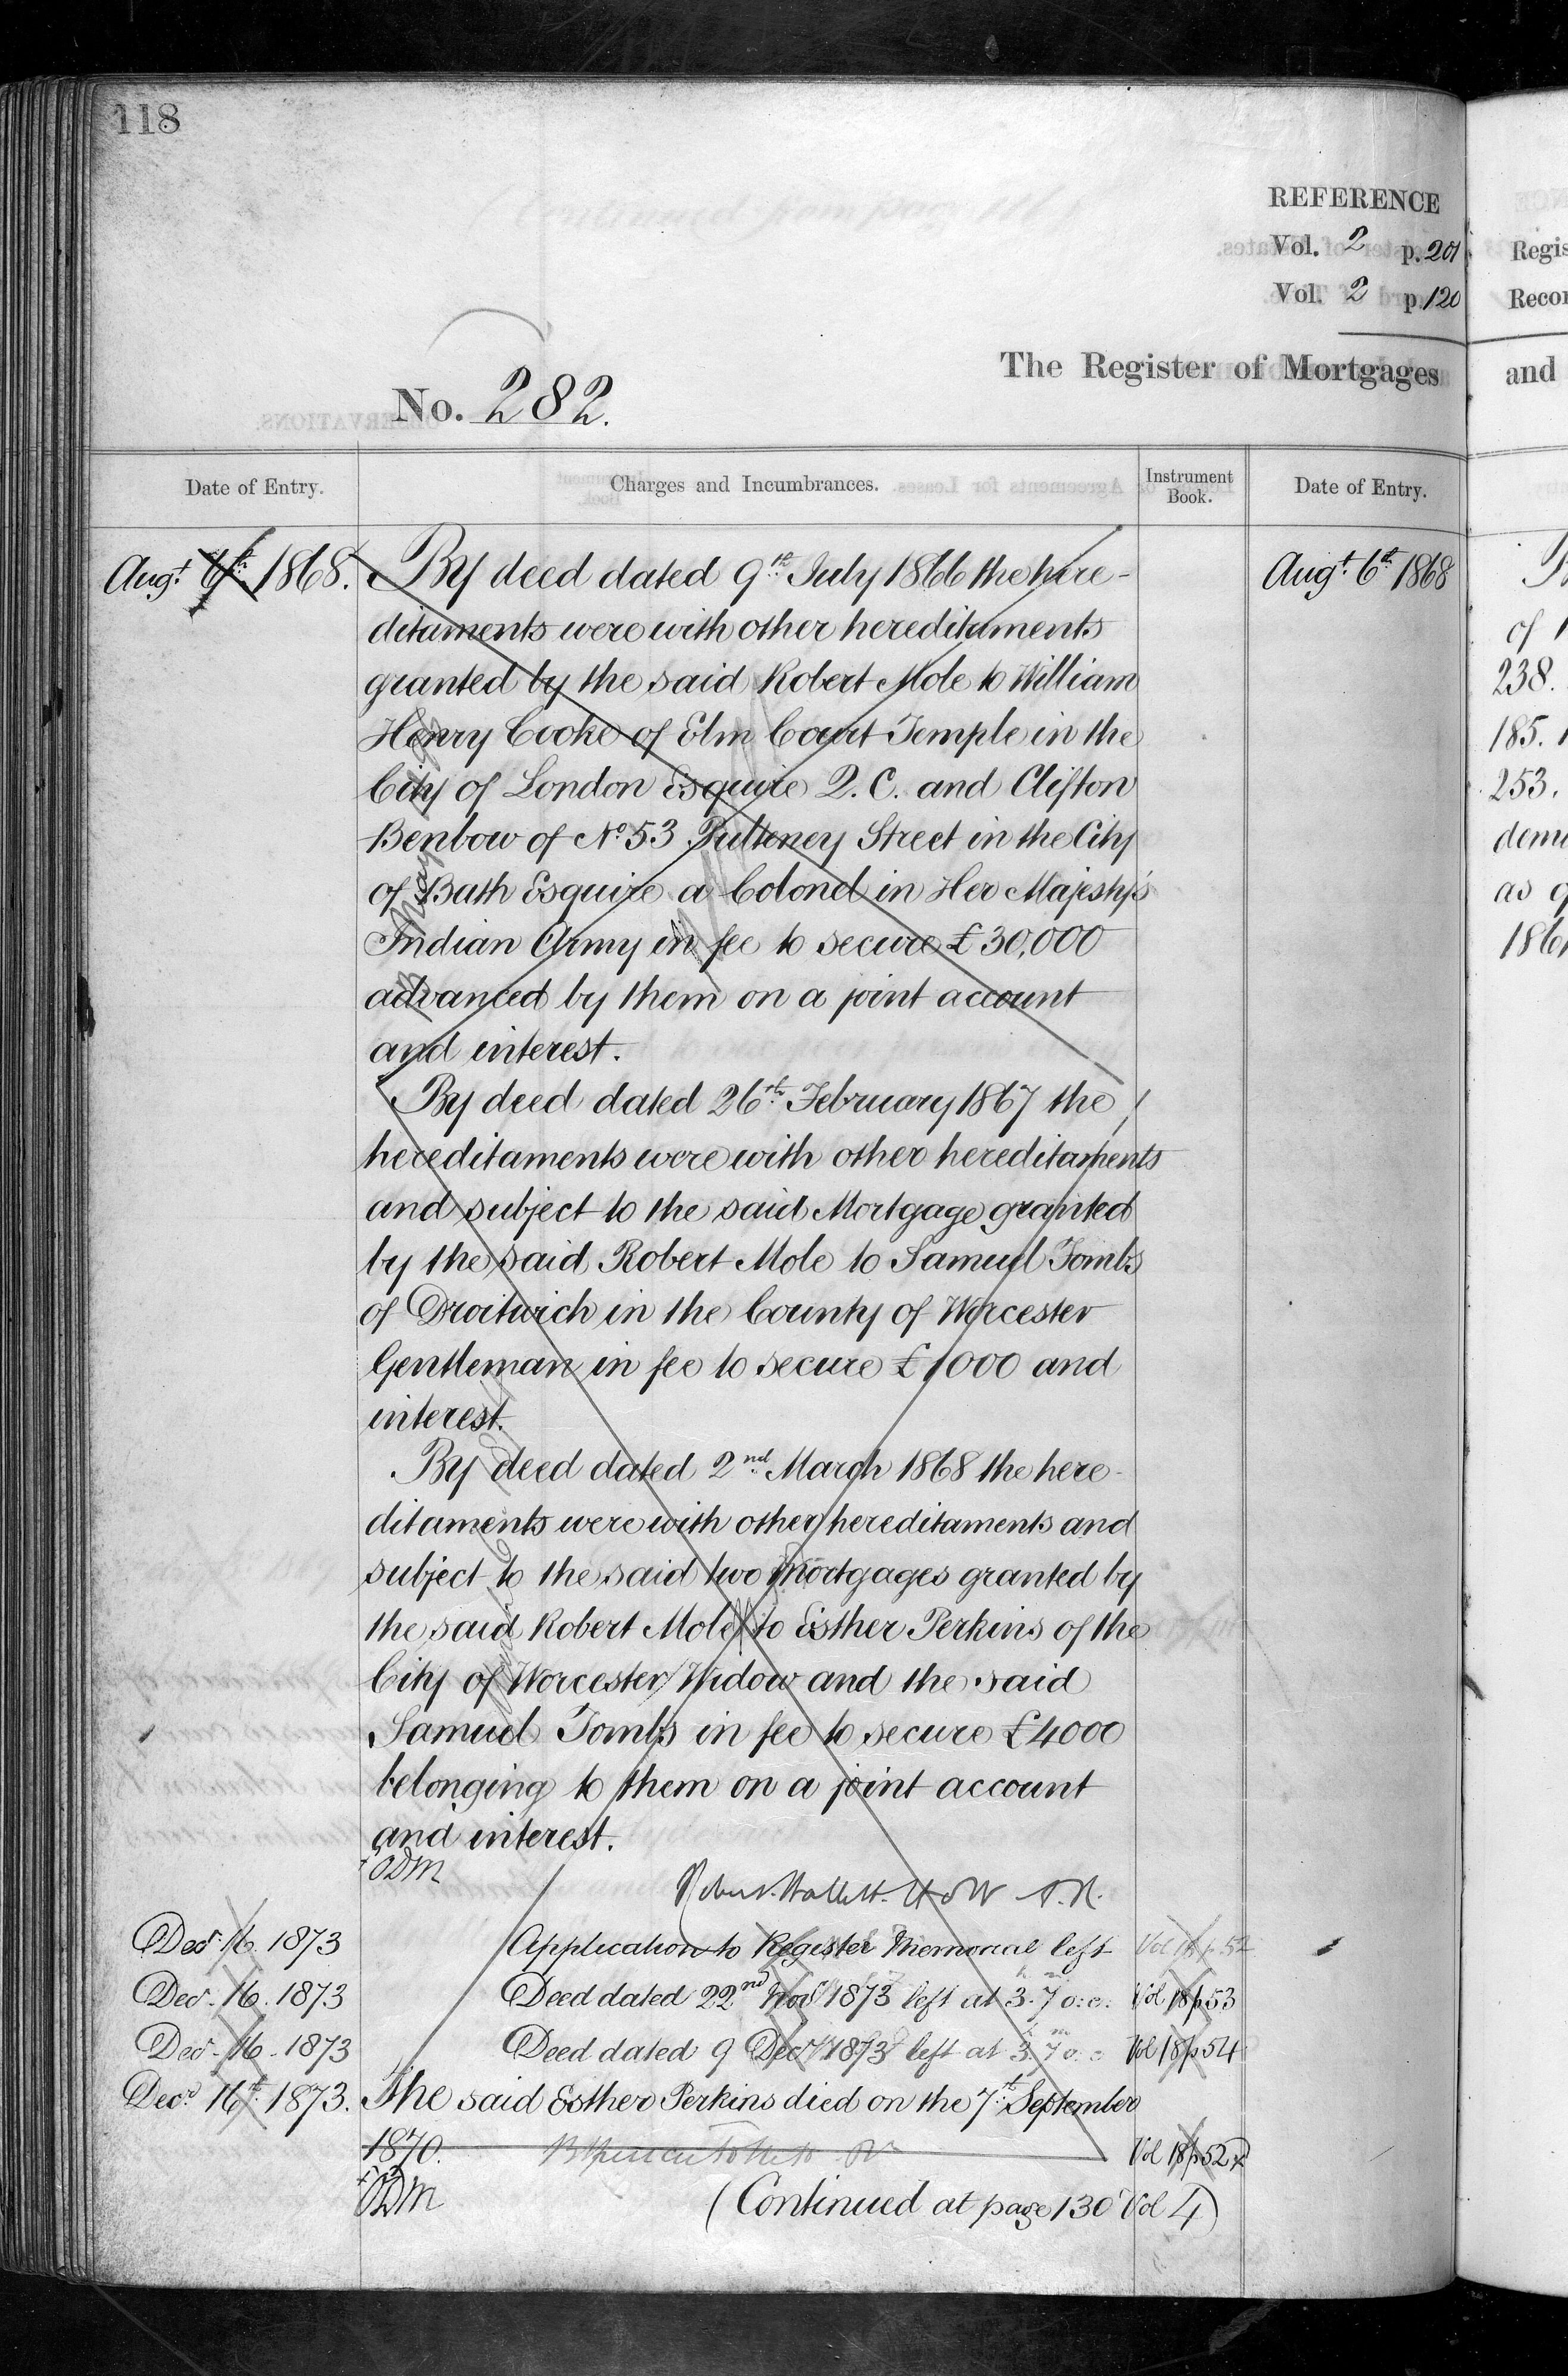 118
REFERENCE
Vol. 2 p. 201
Vol. 2 p. 120
The Register of Mortgages
No. 282.
Date of Entry.
Charges and Incumbrances.
Instrument Book.
Date of Entry.
Augt. 6th 1868. By deed dated 9th July 1866 the here- Augt. 6th 1868
ditaments were with other hereditaments
granted by the said Robert Mole to William
Henry Cooke of Elm Court Temple in the
City of London Esquire Q.C. and Clifton
Benbow of No. 53 Pulteney Street in the City
of Bath Esquire a Colonel in Her Majesty's
Indian Army in fee to secure £30,000
advanced by them on a joint account
and interest.
By deed dated 26th February 1867 the
hereditaments were with other hereditaments
and subject to the said Mortgage granted
by the said Robert Mole to Samuel Tombs
of Droitwich in the County of Worcester
Gentleman in fee to secure £1000 and
interest.
By deed dated 2nd March 1868 the here-
ditaments were with other hereditaments and
subject to the said two Mortgages granted by
the said Robert Mole to Esther Perkins of the
City of Worcester Widow and the said
Samuel Tombs in fee to secure £4000
belonging to them on a joint account
and interest.
Robert Hallett Holt A.R.
Decr. 16. 1873 Application to Register Memorial left Vol 18 p. 52
Decr. 16. 1873 Deed dated 22nd Novr 1873 left at 3.7 o.c. Vol 18 p 53
Decr. 16. 1873 Deed dated 9 Decr 1873 left at 3.7 o.c. Vol 18 p 54
Decr. 16th 1873. The said Esther Perkins died on the 7th September
1870. Vol 18 p 52
(Continued at page 130 Vol 4)
and
Regis
Recor
of
238.
185.
253.
demi
as
186